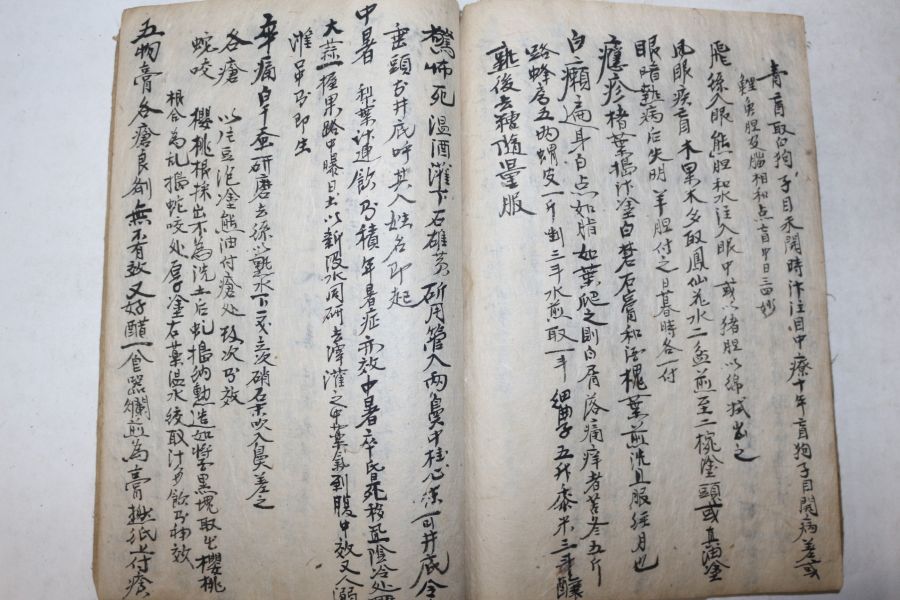 青盲取白狗子目未開時汁注目中療十年盲狗子目開病差或
鯉魚胆及腦相和点盲中日三四妙
飛絲入眼熊胆和水注入眼中或以猪胆以綿拭出之
風眼疾盲木果木多取鳳仙花水二盆煎至二椀塗頭或真油塗
眼暗熱病后失明羊胆付之日暮時各一付
癮疹楮葉搗汁塗白芷石膏和酒槐葉煎洗且服經月也
白癩遍身白点如脂如葉爬之則白屑落痛痒者苦參五斤
路蜂房五兩蝟皮一斤剉三斗水煎取一斗細曲子五升黍米三斗釀
熟後去糟隨量服
驚怖死溫酒灌下石雄黃研用管入兩鼻中桂心 一可井底令
垂頭于井底呼其人姓名即起
中暑 利葉汁連飲乃積年暑症亦效中暑卒昏死移至陰冷處
大蒜一握果路中曝日土以新汲水同研去滓灌之中藥氣到腹中效又人溺
灌口中乃即生
卒痛白下蚕研磨去絲以熱水下一戈立次硝石末吹入鼻差之
各瘡 以注豆泥塗熊油付瘡處 次乃效
蛇咬 櫻桃根採出不為洗土后 搗 動造如掌黑塊取出櫻桃
根合為乱搗蛇咬处厚塗右葉溫水絞取汁多飲乃神效
五物膏各瘡良劑無不有效又好醋一合器爛煎為膏 紙上付瘡